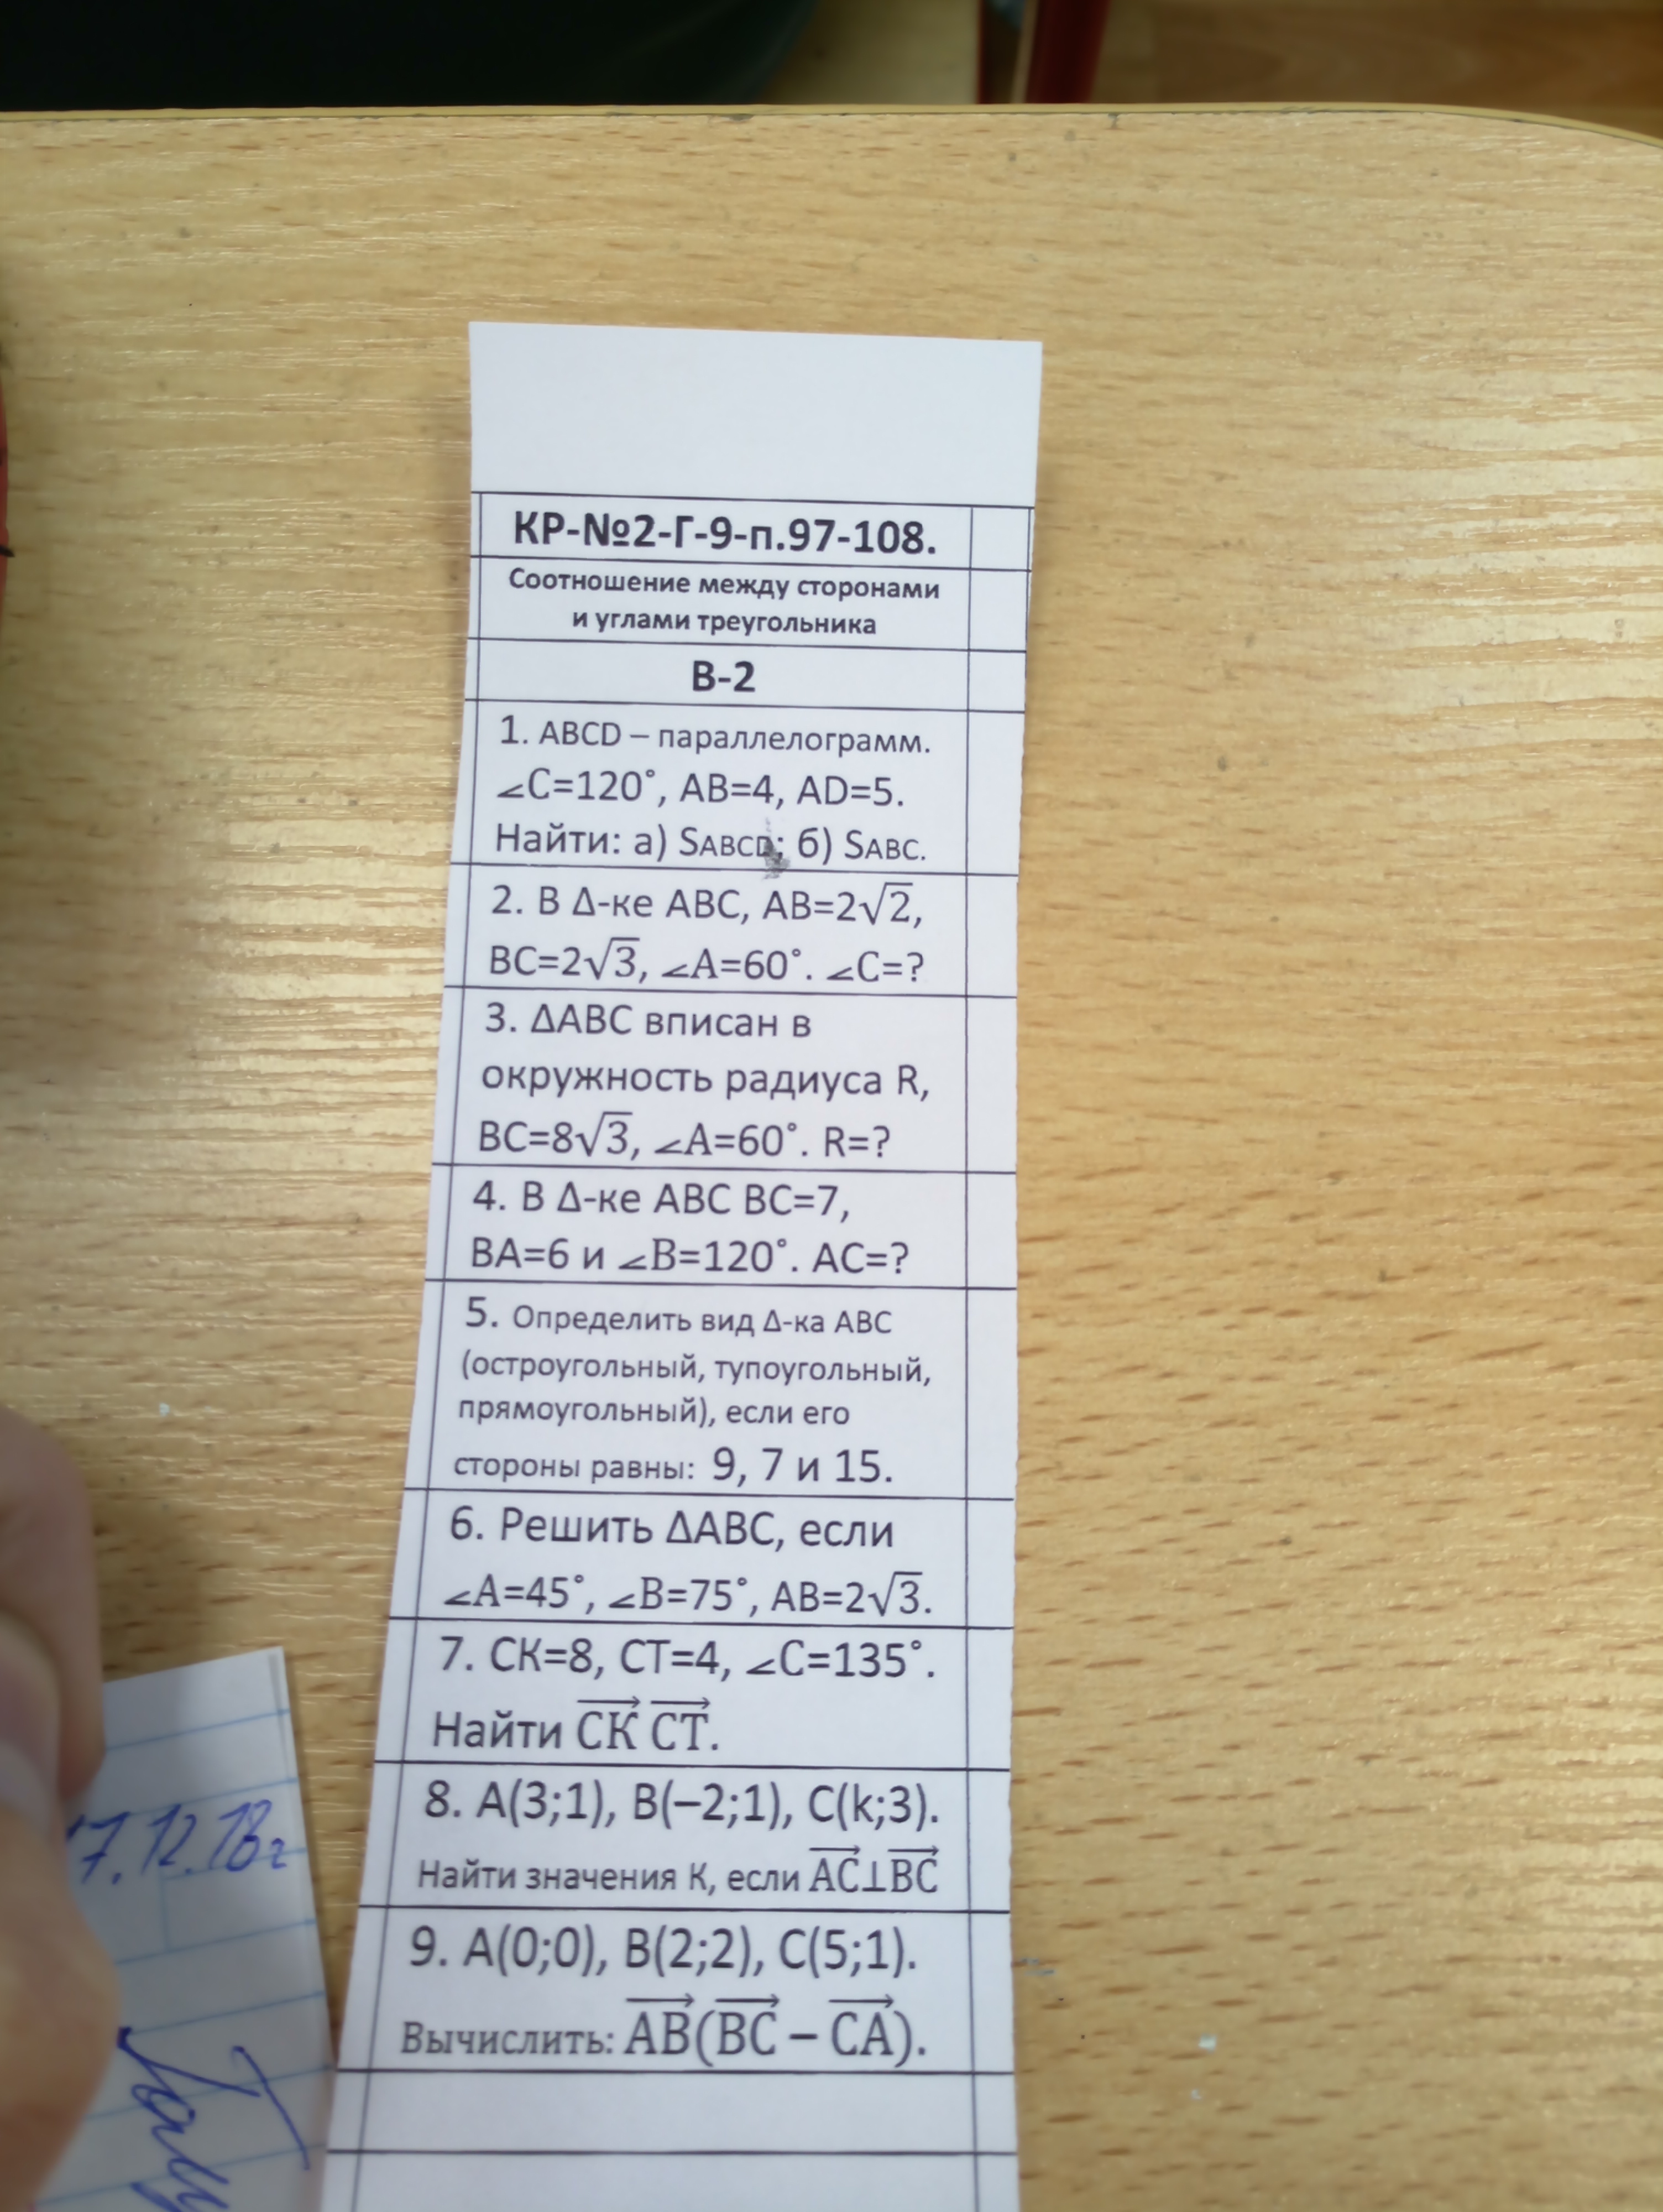 КР-№2-Г-9-п.97-108.
Соотношение между сторонами
и углами треугольника
В-2
1. ABCD – параллелограмм.
∠C=120°, AB=4, AD=5.
Найти: а) SABCD; б) SABC.
2. В Δ-ке ABC, AB=2√2,
BC=2√3, ∠A=60°. ∠C=?
3. ΔABC вписан в
окружность радиуса R,
BC=8√3, ∠A=60°. R=?
4. В Δ-ке ABC BC=7,
BA=6 и ∠B=120°. AC=?
5. Определить вид Δ-ка ABC
(остроугольный, тупоугольный,
прямоугольный), если его
стороны равны: 9, 7 и 15.
6. Решить ΔABC, если
∠A=45°, ∠B=75°, AB=2√3.
7. СК=8, СТ=4, ∠C=135°.
Найти CK⃗ CT⃗.
8. A(3;1), B(–2;1), C(k;3).
Найти значения К, если AC⃗⊥BC⃗
9. A(0;0), B(2;2), C(5;1).
Вычислить: AB⃗(BC⃗ – CA⃗).
17.12.18г